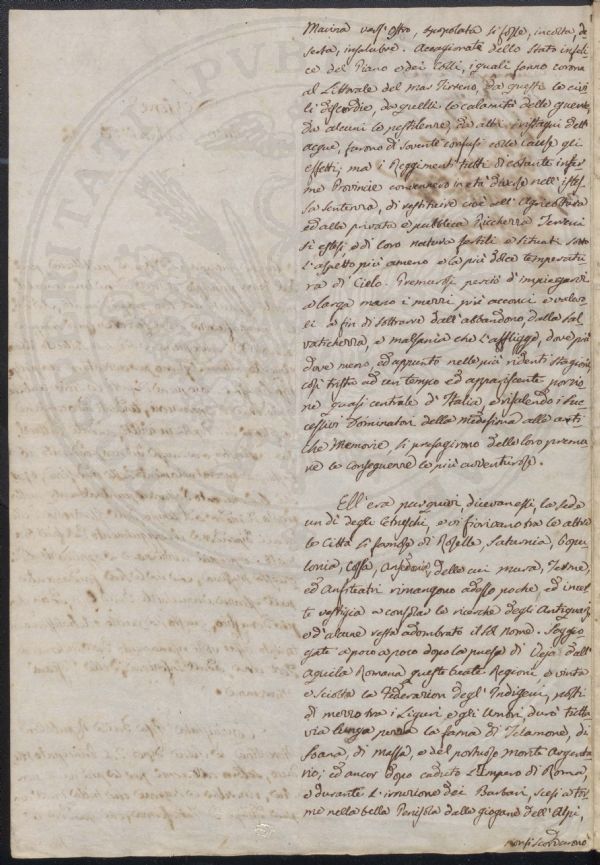 Marina vass' ostro, spopolata si fosse, incolta, de
serta, insalubre. Accagionate dello stato infeli
ce del Piano e dei Colli, i quali fanno corona
al Littorale del mar Tirreno, da questi le civi
li discordie, da quelli le calamità delle guerre,
da alcuni le pestilenze, da altri i ristagni dell'
acque, furono di sovente confusi colle cause gli
effetti; ma i Reggimenti tutti di cotante infer
me Provincie convennero in età diverse nell' istes
sa sentenza, di restituire cioè all' Agricoltura
ed alla privata e pubblica Ricchezza Terreni
sì estesi, e di loro natura fertili e situati sotto
l' aspetto più ameno e la più dolce temperatu
ra di Cielo. Premurosi perciò d' impiegarvi
a larga mano i mezzi più acconci e valevo
li a fin di sottrarre dall' abbandono, dalla sal
vatichezza, e malsania che l' affligge, dove più
dove meno, ed appunto nelle più ridenti stagioni,
così trista ad un tempo ed appariscente porzio
ne quasi centrale d' Italia, e risalendo i suc
cessivi Dominatori della medesima alle anti
che Memorie, si presagirono dalle loro premu
re le conseguenze le più avventurose.
Ell' era pur quivi dicevanessi, la sede
un dì degli Etruschi, e vi fiorivano tra le altre
le Città sì famose di Roselle, Saturnia, Popu
lonia, Cossa, Ansedonia, delle cui mura, Terme,
ed Anfiteatri rimangono adesso poche, ed incer
te vestigia a confortar le ricerche degli Antiquarj,
e d' alcune resta adombrato il sol nome. Soggio
gate a poco a poco dopo la presa di Veja dall'
aquila Romana queste beate Regioni, e vinta
e sciolta la Federazion degl' Indigeni, posti
di mezzo tra i Liguri e gli Umbri, durò tutta
via lunga pezza la fama di Telamone, di
Soana, di Massa, e del portuoso monte Argenta
rio; ed ancor dopo caduto l' Impero di Roma,
e durante l' irruzione dei Barbari, scesi a tor
me nella bella Penisola dalle giogane dell' Alpi,
non si scordarono